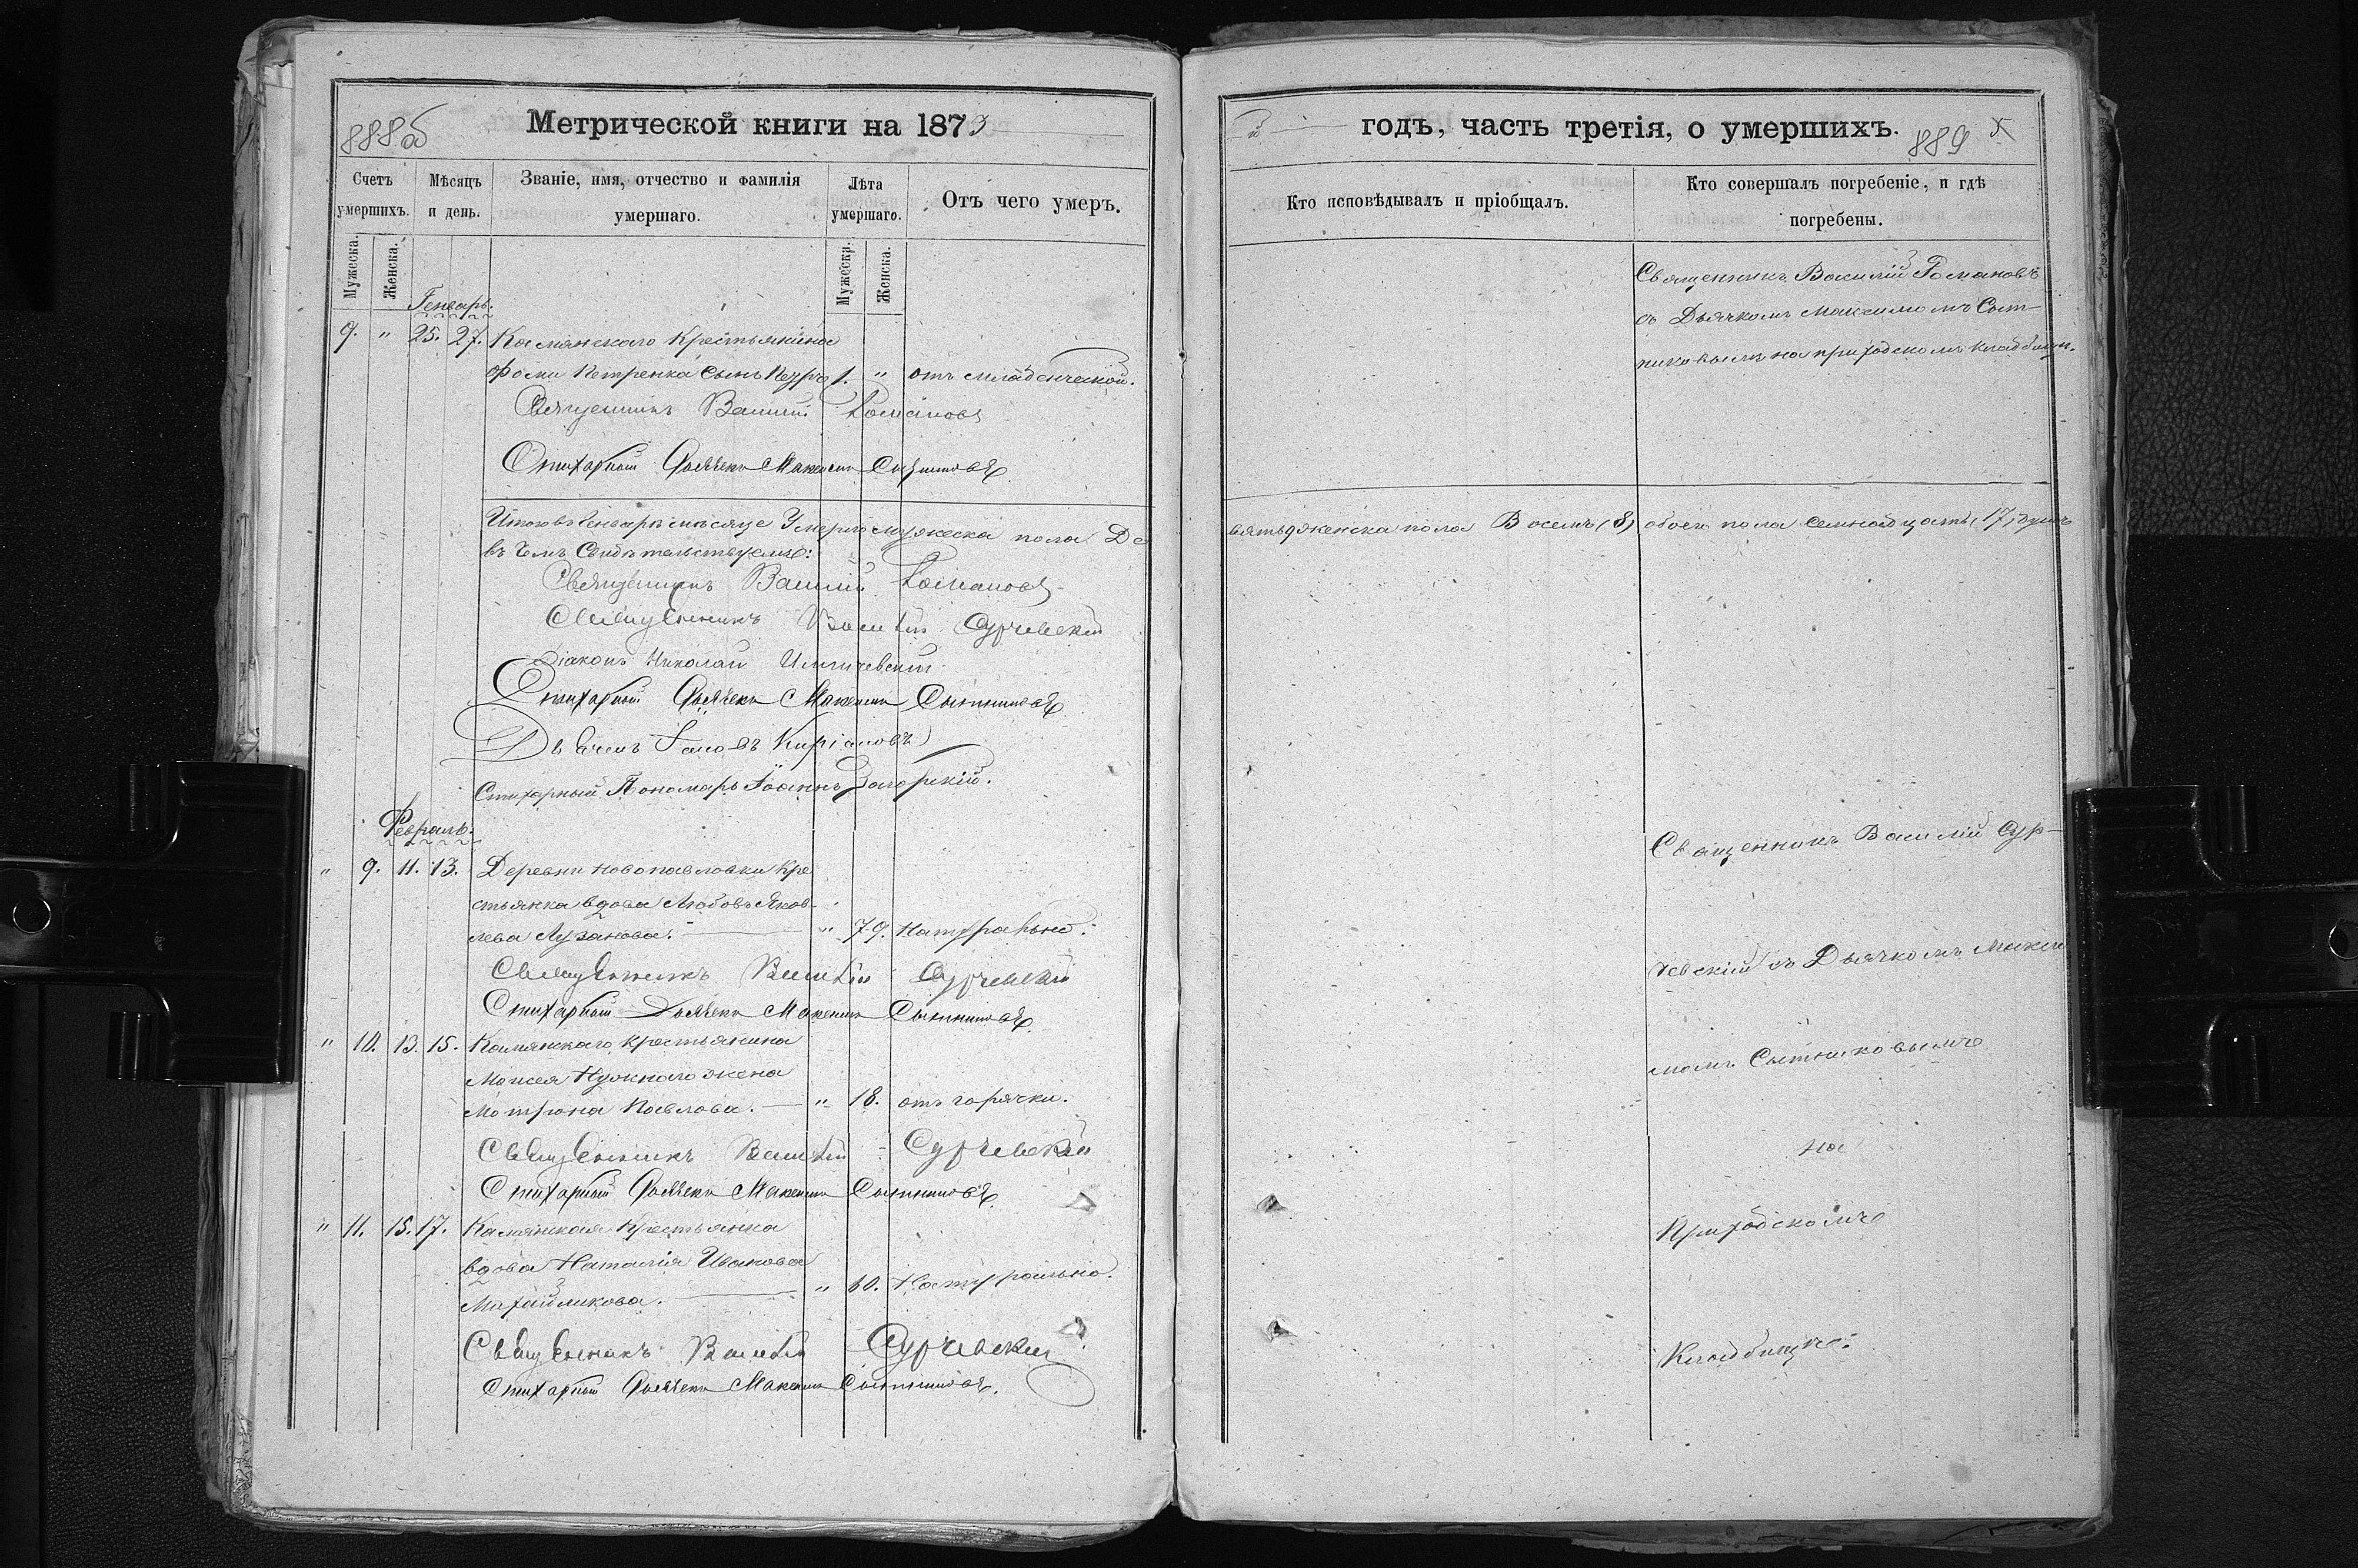 888об
Метрической книги на 1873
Счетъ умершихъ.
Мѣсяцъ и день.
Званіе, имя, отчество и фамилія умершаго.
Лѣта умершаго.
Отъ чего умеръ.
Мужеска.
Женска.
Мужеска.
Женска.
Генварь.
9. " 25. 27. Камянскаго Крестьянина
Фомы Петренка сынъ Петръ 1. " отъ младенческой.
Священникъ Василій Романовъ
Стихарный Дьячекъ Максимъ Сытниковъ
Итого въ Генварѣ мѣсяце Умерло мужеска пола Де
въ чемъ Свидѣтельствуемъ:
Священникъ Василій Романовъ
Священникъ Василій Сурчевскій
Діаконъ Николай
Стихарный Дьячекъ Максимъ Сытниковъ
Дьячекъ Іаковъ Киріаковъ
Стихарный Пономарь Іоаннъ Загорскій.
Февраль.
" 9. 11. 13. Деревни Новопавловки Кре
стьянка вдова Любовь Яков-
лева Лузанова. " 79. Натурально.
Священникъ Василій Сурчевскій
Стихарный Дьячекъ Максимъ Сытниковъ
" 10. 13. 15. Камянскаго крестьянина
Моисея Нужнаго жена
Мотрона Павлова. " 18. отъ горячки.
Священникъ Василій Сурчевскій
Стихарный Дьячекъ Максимъ Сытниковъ
" 11. 15. 17. Камянская Крестьянка
вдова Наталія Иванова
Михайликова. " 60. Натурально.
Священникъ Василій Сурчевскій
Стихарный Дьячекъ Максимъ Сытниковъ.
й годъ, часть третія, о умершихъ.
889
Кто исповѣдывалъ и пріобщалъ.
Кто совершалъ погребеніе, и гдѣ погребены.
Священникъ Василій Романовъ
съ Дьячкомъ Максимомъ Сыт-
никовымъ на приходскомъ кладбищѣ.
вять, женска пола Восемъ (8) обоего пола семнадцать (17) душъ
Священникъ Василій Сур-
чевскій съ Дьячкомъ Макси
момъ Сытниковымъ
на
Приходскомъ
Кладбищѣ: